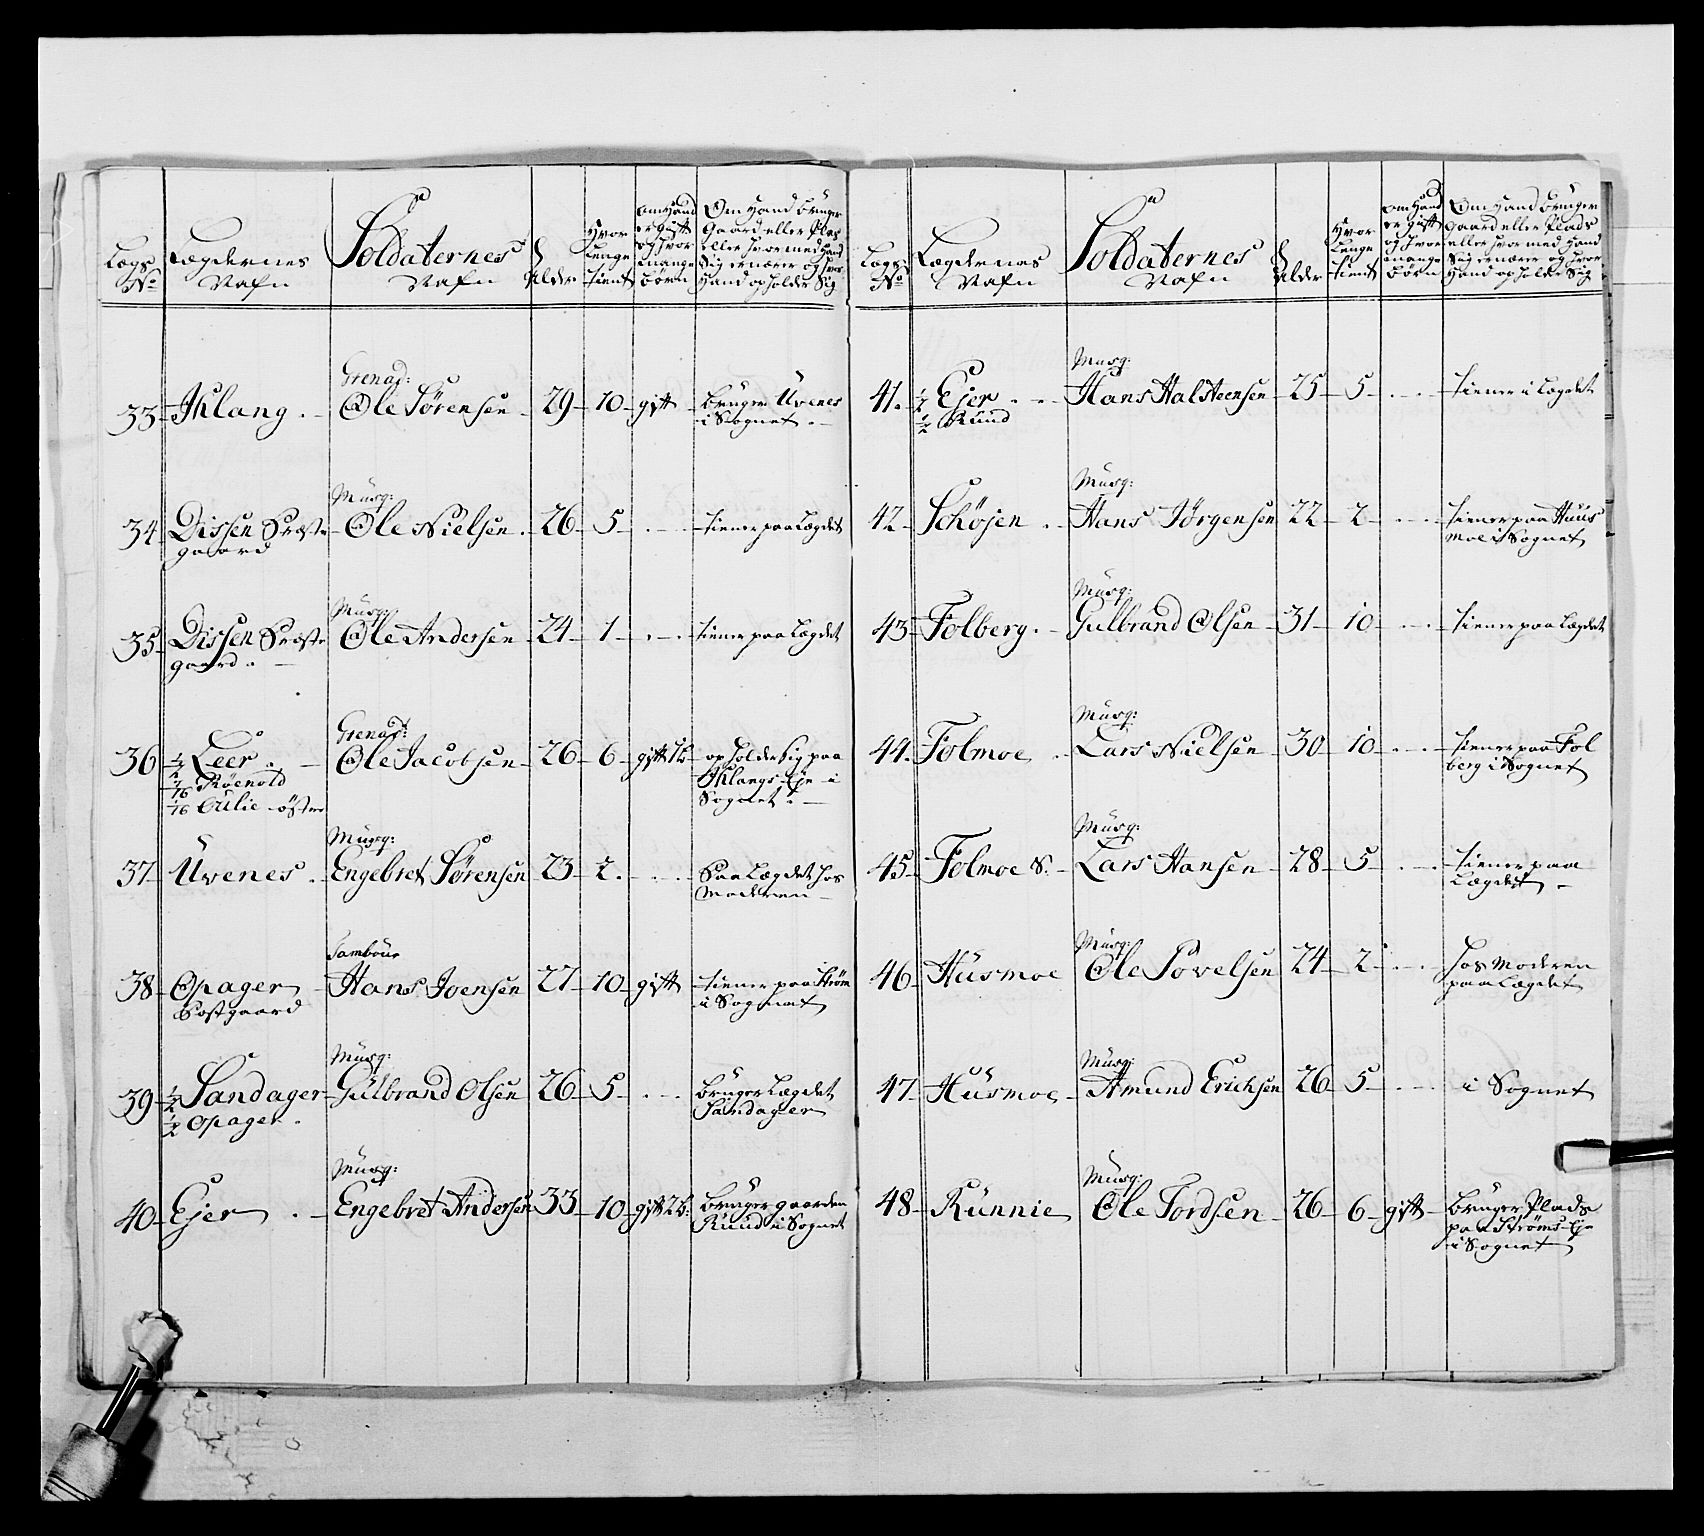 Lægs No
Lægdernes Nafn
Soldaternes Nafn
Alder
Hvor Lenge tient
om Hand er gift og hvor mange børn
Om Hand bruger Gaard eller Plads eller hvor med Hand Sig ernærer og hvor Hand opholder Sig
33 Ihlang Grenad: Ole Sørensen 29 10 gift bruger Uvenes
i Sognet
34 Dissen Præste Musq: Ole Nielsen 26 5 tiener paa Lægdet
gaard
35 Dissen Præste Musq: Ole Andersen 24 1 tiener paa Lægdet
gaard
36 1/2 Leer Grenad: Ole Jacobsen 26 6 gift 1b opholder Sig paa
7/16 Røenold Ihlangs Eje i
1/16 Bilie østre Sognet
37 Uvenes Musq: Engebret Sørensen 23 2 Paa Lægdet hos
Moderen
38 Opager Tambour Hans Joensen 27 10 gift tiener paa Strøm
Postgaard i Sognet
39 1/2 Sandager Musq: Gulbrand Olsen 26 5 bruger Lægdet
1/2 Opager Sandager
40 Ejer Musq: Engebret Andersen 33 10 gift 2b: bruger gaarden
Ruud i Sognet
Lægs No
Lægdernes Nafn
Soldaternes Nafn
Alder
Hvor Lenge tient
om Hand er gift og hvor mange børn
Om Hand bruger Gaard eller Plads eller hvor med Hand Sig ernærer og hvor Hand opholder Sig
41 1/2 Ejer Musq: Hans Halsteensen 25 5 tiener i Lægdet
1/2 Ruud
42 Schøjen Musq: Hans Jørgensen 22 2 tiener paa Huus
moe i Sognet
43 Folberg Musq: Gulbrand Olsen 31 10 tiener paa Lægdet
44 Folmoe Musq: Lars Nielsen 30 10 tiener paa Fol
berg i Sognet
45 Folmoe S. Musq: Lars Hansen 28 5 tiener paa
Lægdet
46 Husmoe Musq: Ole Povelsen 24 2 hos Moderen
paa Lægdet
47 Husmoe Musq: Amund Erichsen 26 5 i Sognet
48 Runnie Musq: Ole Tordsen 26 6 gift bruger Plads
paa Strøms Eje
i Sognet